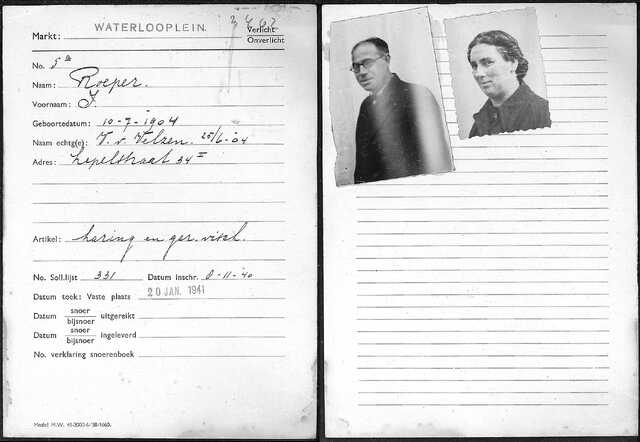 Markt: WATERLOOPLEIN.
Verlicht
Onverlicht
No. 5
Naam: Roeper.
Voornaam: J.
Geboortedatum: 10-7-1904
Naam echtg(e): V. v. Velzen. 25/6-04
Adres: Lepelstraat 34 II
Artikel: haring en ger. visch.
No. Soll.lijst 331 Datum Inschr. 8-11-'40
Datum toek: Vaste plaats 20 JAN. 1941
Datum snoer
bijsnoer uitgereikt
Datum snoer
bijsnoer ingeleverd
No. verklaring snoerenboek